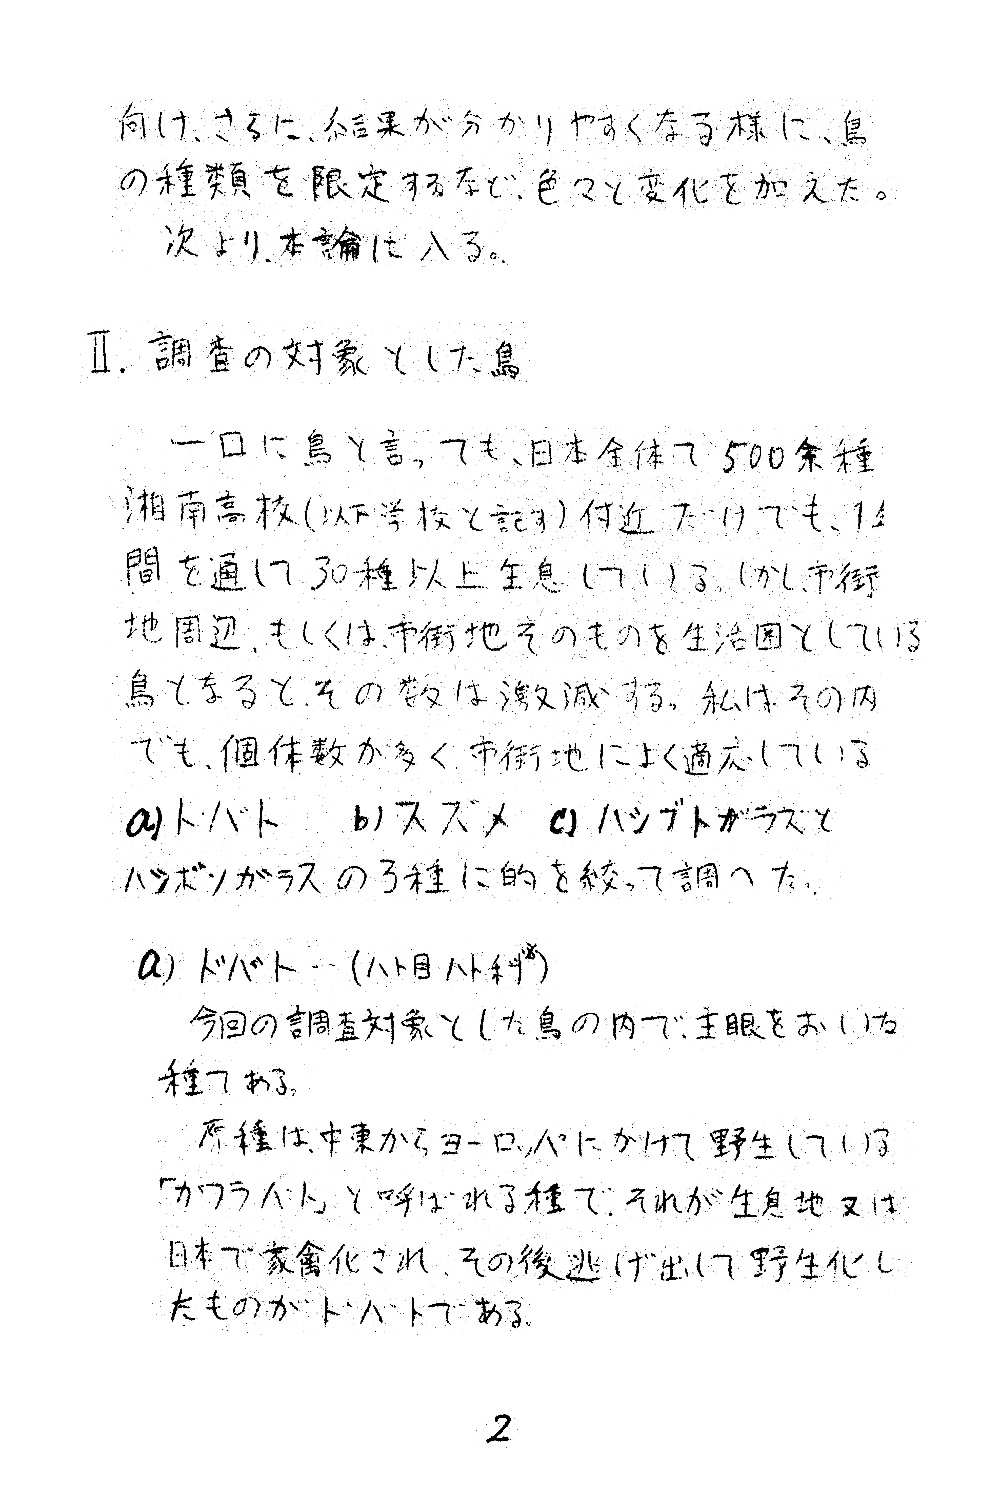 向け、さらに、結果が分かりやすくなる様に、鳥
の種類を限定するなど、色々と変化を加えた。
次より、本論に入る。
Ⅱ. 調査の対象とした鳥
一口に鳥と言っても、日本全体で500余種
湘南高校(以下学校と記す)付近だけでも、1年
間を通して30種以上生息している。しかし、市街
地周辺、もしくは、市街地そのものを生活圏としている
鳥となると、その数は激減する。私はその内
でも、個体数が多く、市街地によく適応している
a)ドバト b)スズメ c)ハシブトガラスと
ハシボソガラスの3種に的を絞って調べた。
a) ドバト…(ハト目ハト科※)
今回の調査対象とした鳥の内で、主眼をおいた
種である。
原種は、中東からヨーロッパにかけて野生している
「カワラバト」と呼ばれる種で、それが生息地又は
日本で家禽化され、その後逃げ出して野生化し
たものがドバトである。
2